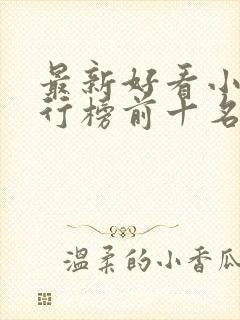 最新好看小
行榜前十名
温柔的小香瓜